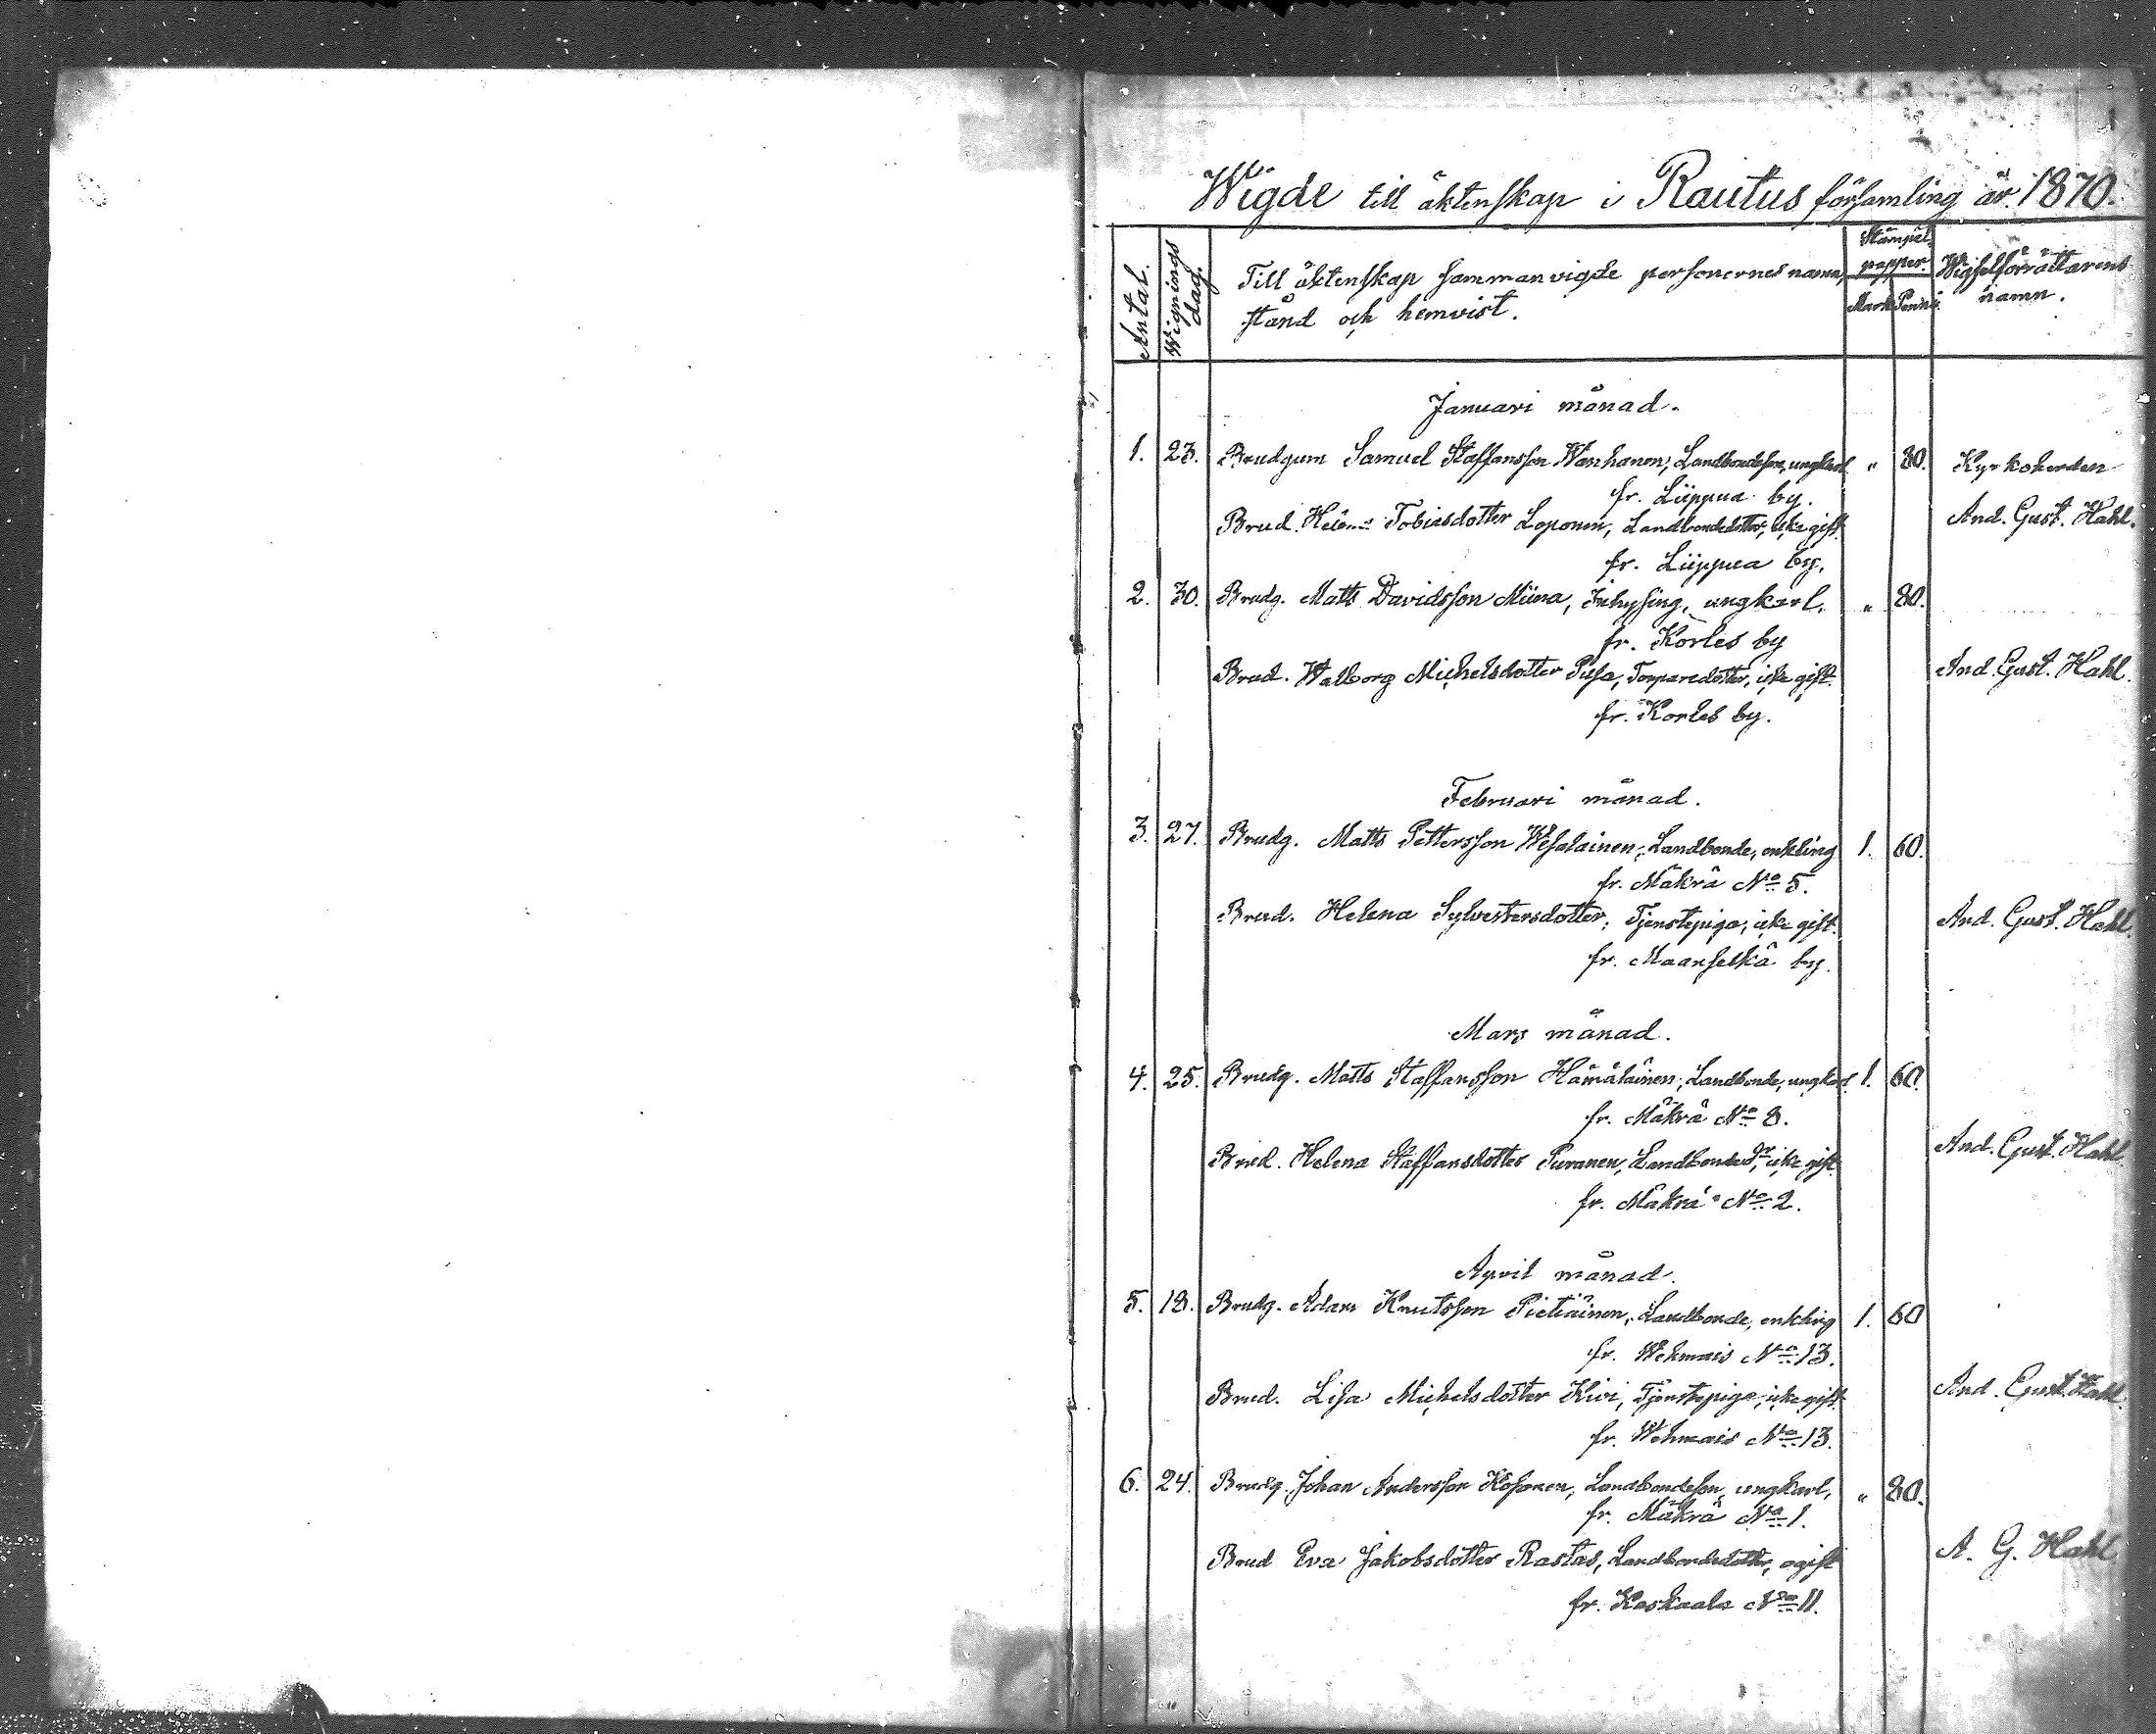 Wigde till äktenskap i Rautus församling år 1870.
Antal.
Wignings dag.
Till äktenskap sammanvigde personernes namn, stånd och hemvist.
Stämpel papper.
Mark Penni.
Wigselförrättarens namn.
Januari månad.
1. 23. Brudgum Samuel Staffansson Wanhanen, Landbondeson, ungkarl " 80. Kyrkoherden
fr. Liippua by.
Brud. Helena Tobiasdotter Loponen, Landbondedotter, icke gift. And. Gust. Hahl.
fr. Liippua by.
2. 30. Brudg. Matts Davidsson Miina, Inhysing, ungkarl. " 80.
fr. Korles by
Brud. Walborg Michelsdotter Pusa, Torparedotter, icke gift. And. Gust. Hahl.
fr. Korles by.
Februari månad.
3. 27. Brudg. Matts Pettersson Wesalainen, Landbonde, enkling 1. 60.
fr. Mäkrä No 5.
Brud. Helena Sylvestersdotter, Tjenstepiga, icke gift. And. Gust. Hahl.
fr. Maanselkä by.
Mars månad.
4. 25. Brudg. Matts Staffansson Hämäläinen, Landbonde, ungkarl 1. 60.
fr. Mäkrä No 8.
Brud. Helena Staffansdotter Puranen, Landbonded:r, icke gift And. Gust. Hahl
fr. Mäkrä No 2.
April månad.
5. 18. Brudg. Adam Knutsson Pietiäinen, Landbonde, enkling 1. 60
fr. Wehmais No 13.
Brud. Lisa Michelsdotter Kivi, Tjenstepiga, icke gift. And. Gust. Hahl.
fr. Wehmais No 13.
6. 24. Brudg. Johan Andersson Kosonen, Landbondeson, ungkarl, " 80.
fr. Mäkrä No 1.
Brud Eva Jakobsdotter Rastas, Landbondedotter, ogift A. G. Hahl
fr. Kaskaala No 11.